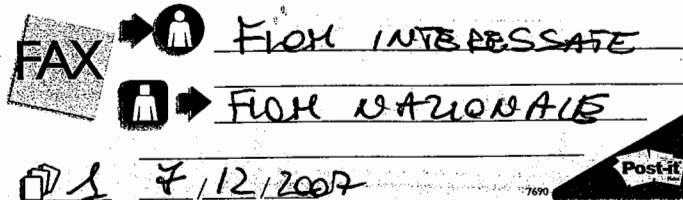 FAX
FIOM INTERESSATE
FIOM NAZIONALE
1 7/12/2007
7690
Post-it